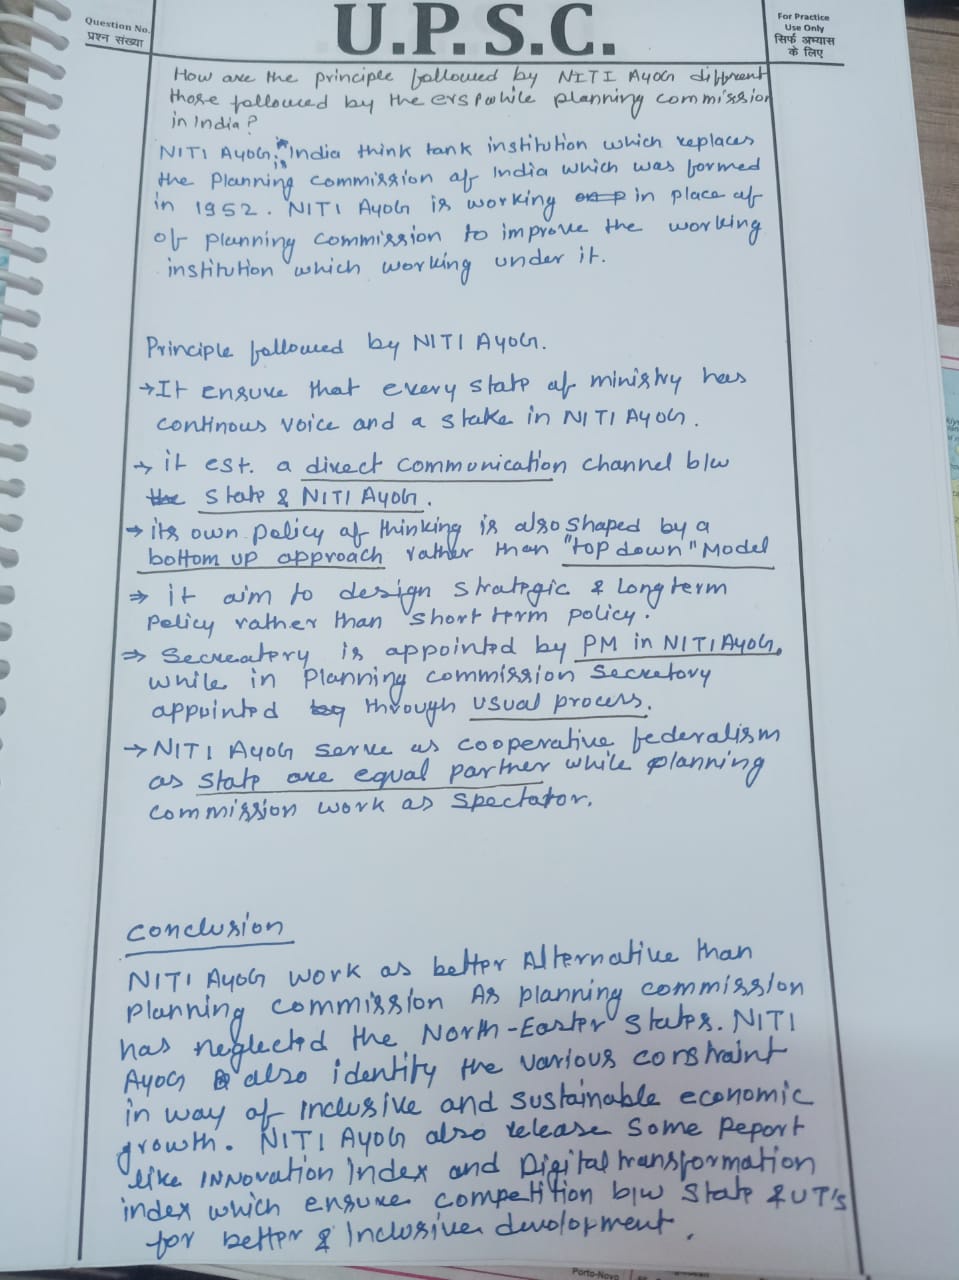 Question No.
प्रश्न संख्या
U.P.S.C.
For Practice
Use Only
सिर्फ अभ्यास
के लिए
How are the principle followed by NITI AYOG different
those followed by the erspwhile planning commission
in India?
NITI AYOG, is India think tank institution which replaces
the Planning commission of India which was formed
in 1952. NITI AYOG is working in place of
of planning commission to improve the working
institution which working under it.
Principle followed by NITI AYOG.
→It ensure that every state of ministry has
continous voice and a stake in NITI AYOG.
→ it est. a direct communication channel b/w
the state & NITI AYOG.
→ its own policy of thinking is also shaped by a
bottom up approach rather than "top down" Model
⇒ it aim to design strategic & Long term
policy rather than short term policy.
⇒ Secreatery is appointed by PM in NITI AYOG,
while in Planning commission secretory
appointed by through usual process.
→ NITI AYOG serve as cooperative federalism
as state are equal partner while planning
commission work as spectator.
Conclusion
NITI AYOG work as better Alternative than
planning commission As planning commission
has neglected the North-Easter states. NITI
AYOG also identity the various constraint
in way of inclusive and sustainable economic
growth. NITI AYOG also release some Report
like INNOVation Index and Digital transformation
index which ensure competition b/w state & UT's
for better & Inclusive devolopment.
Porto-Novo